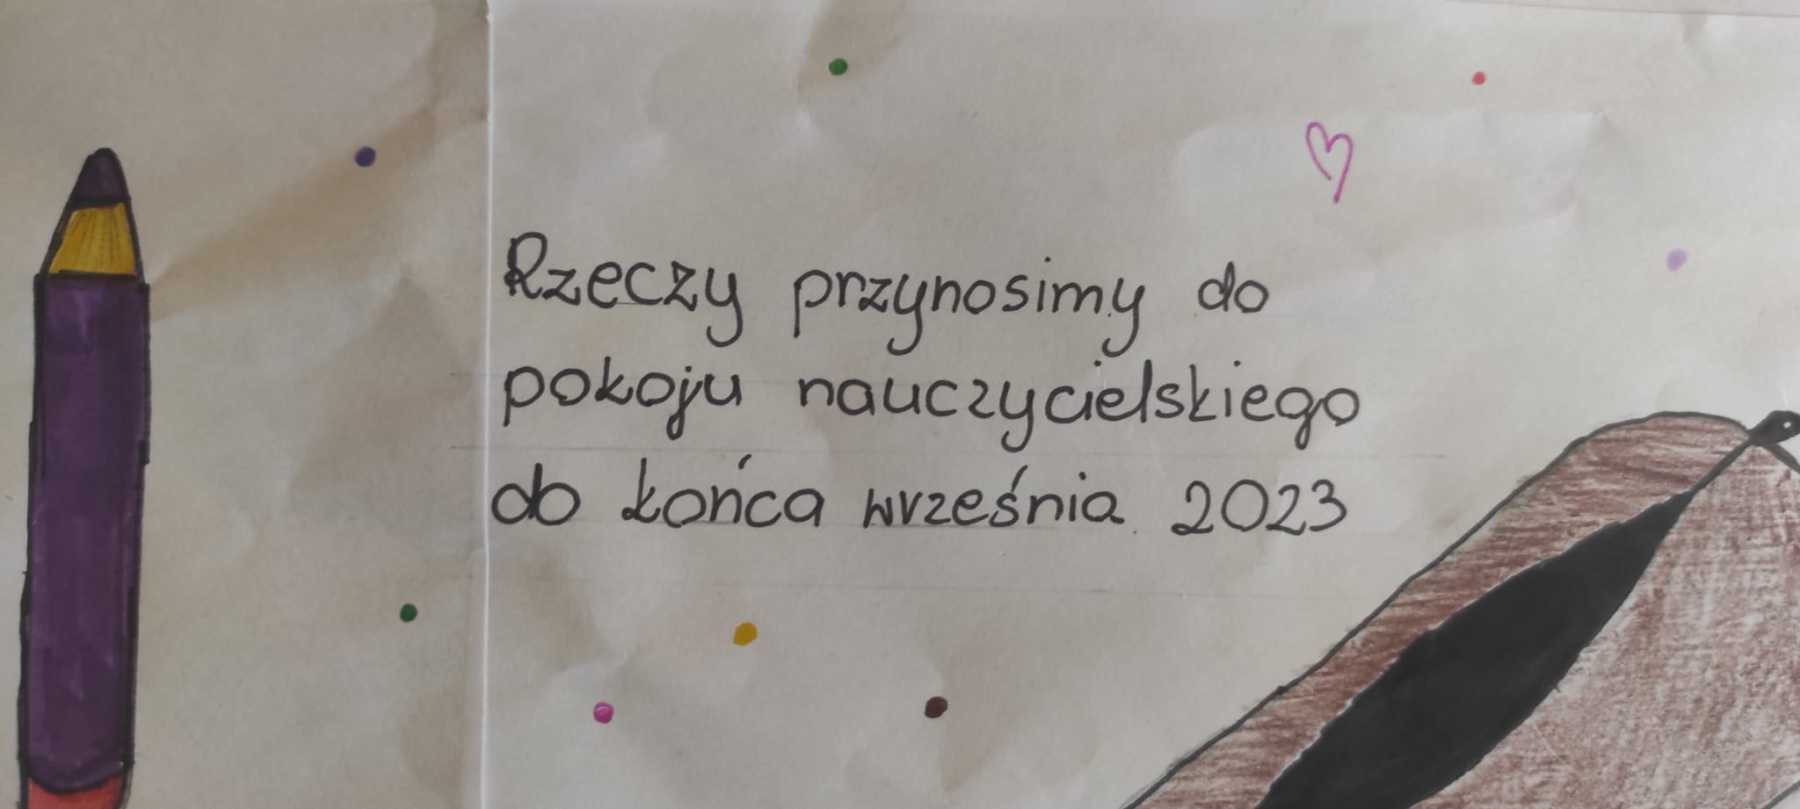 Rzeczy przynosimy do
pokoju nauczycielskiego
do końca września 2023